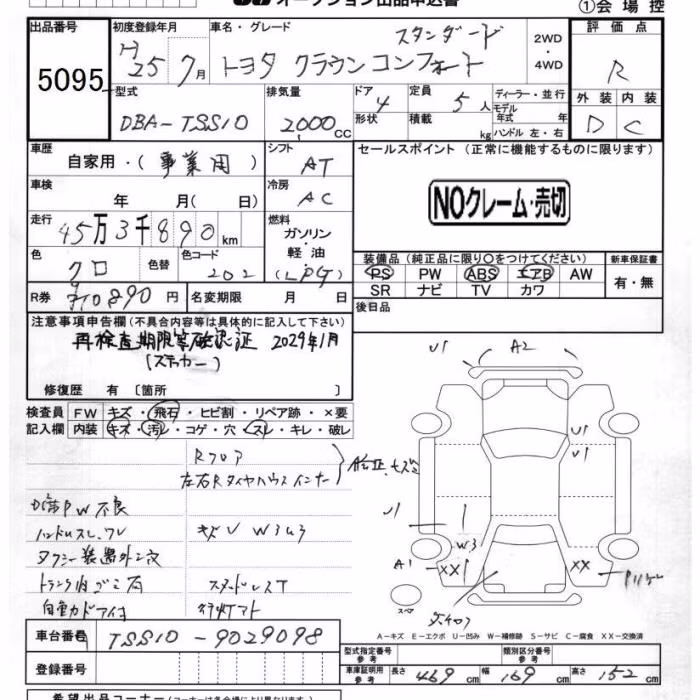 オークション出品申込書
①会場控
出品番号 5095
初度登録年月 H25 7月
車名・グレード スタンダード
トヨタ クラウンコンフォート
2WD・4WD
評価点 R
外装 D 内装 C
型式 DBA-TSS10
排気量 2000cc
ドア 4 形状
定員 5人 積載 kg
ディーラー・並行
モデル年式 年
ハンドル 左・右
車歴 自家用・(事業用)
シフト AT
セールスポイント (正常に機能するものに限ります)
NOクレーム・売切
車検 年 月( 日)
冷房 AC
走行 45万3千890km
燃料 ガソリン・軽油 (LPG)
色 クロ 色替 色コード 202
装備品(純正品に限り○をつけてください) 新車保証書
PS PW ABS エアB AW 有・無
SR ナビ TV カワ
R券 ¥10890円 名変期限 月 日
後日品
注意事項申告欄(不具合内容等は具体的に記入して下さい)
再検査期限等確認証 2029年1月
(ステッカー)
修復歴 有〔箇所 〕
検査員記入欄
FW キズ・飛石・ヒビ割・リペア跡・×要
内装 キズ・汚レ・コゲ・穴・スレ・キレ・破レ
Rフロア
左右Rタイヤハウスインナー
PW不良
キズU W3U3
タクシー装置外シ穴
トランク内ゴミ有
スタッドレスT
自動カドアイヨ
行灯マト
U1 A2
U1
U1
U1
W3
A1 XX XX
スマ
A-キズ E-エクボ U-凹み W-補修跡 S-サビ C-腐食 XX-交換済
車台番号 TSS10-9029098
登録番号
型式指定番号 参考 類別区分番号 参考
車庫証明用参考 長さ 469cm 幅 169cm 高さ 152cm
希望出品コーナー(コーナーは各会場により異なります)